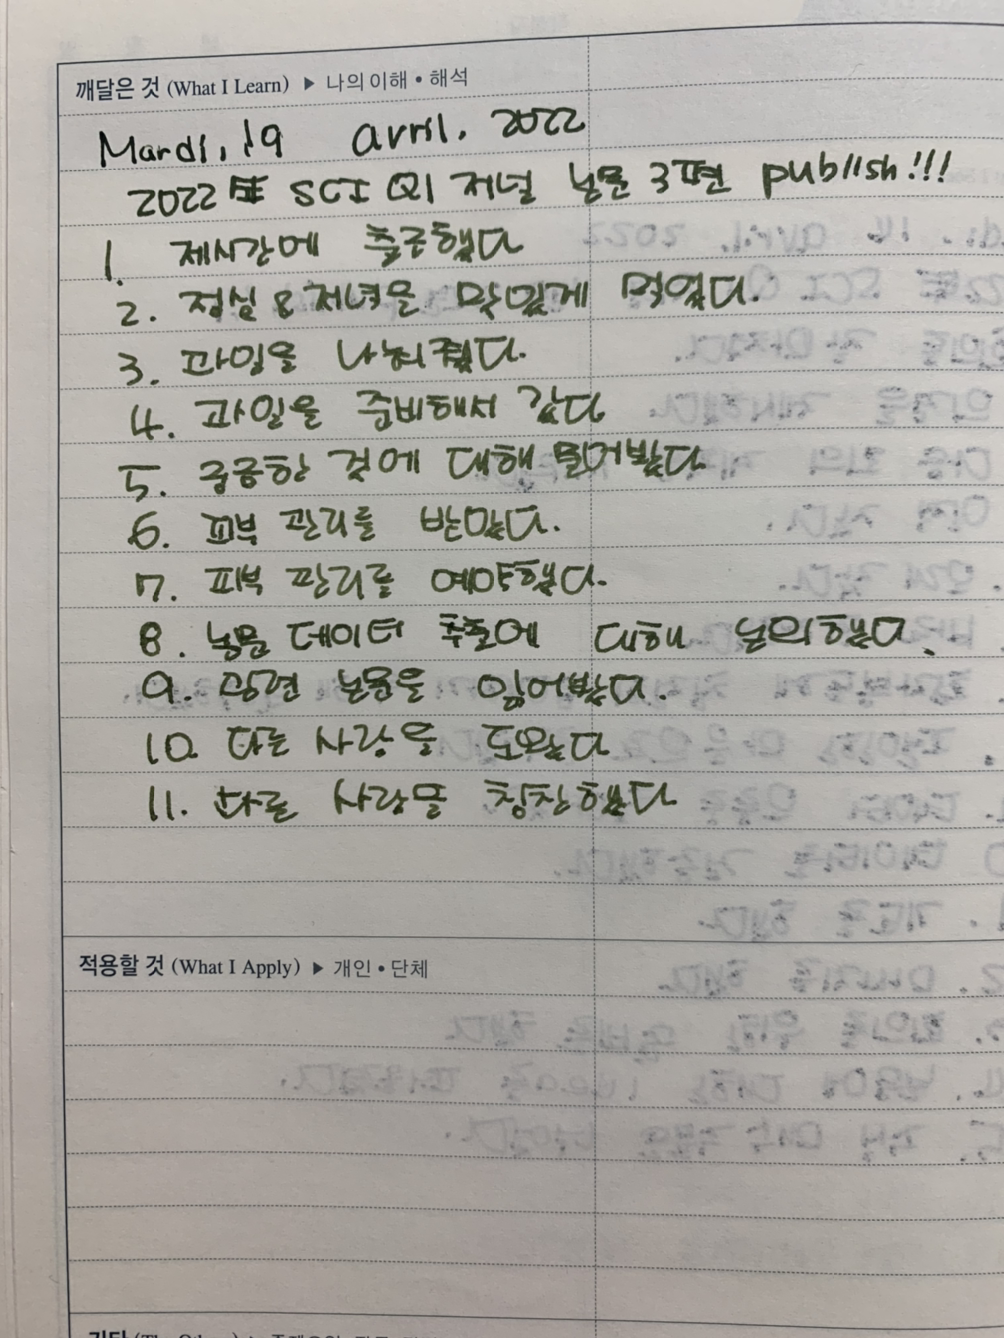 깨달은 것 (What I Learn) ▶ 나의 이해 • 해석
Mardi, 19 avril. 2022
2022年 SCI Q1 저널 논문 3편 publish!!!
1. 제시간에 출근했다
2. 점심 & 저녁을 맛있게 먹었다.
3. 과일을 나눠줬다.
4. 과일을 준비해서 갔다
5. 궁금한 것에 대해 물어봤다
6. 피부 관리를 받았다.
7. 피부 관리를 예약했다.
8. 논문 데이터 추출에 대해 논의했다.
9. 관련 논문을 읽어봤다.
10. 다른 사람을 도왔다
11. 다른 사람을 칭찬했다
적용할 것 (What I Apply) ▶ 개인 • 단체